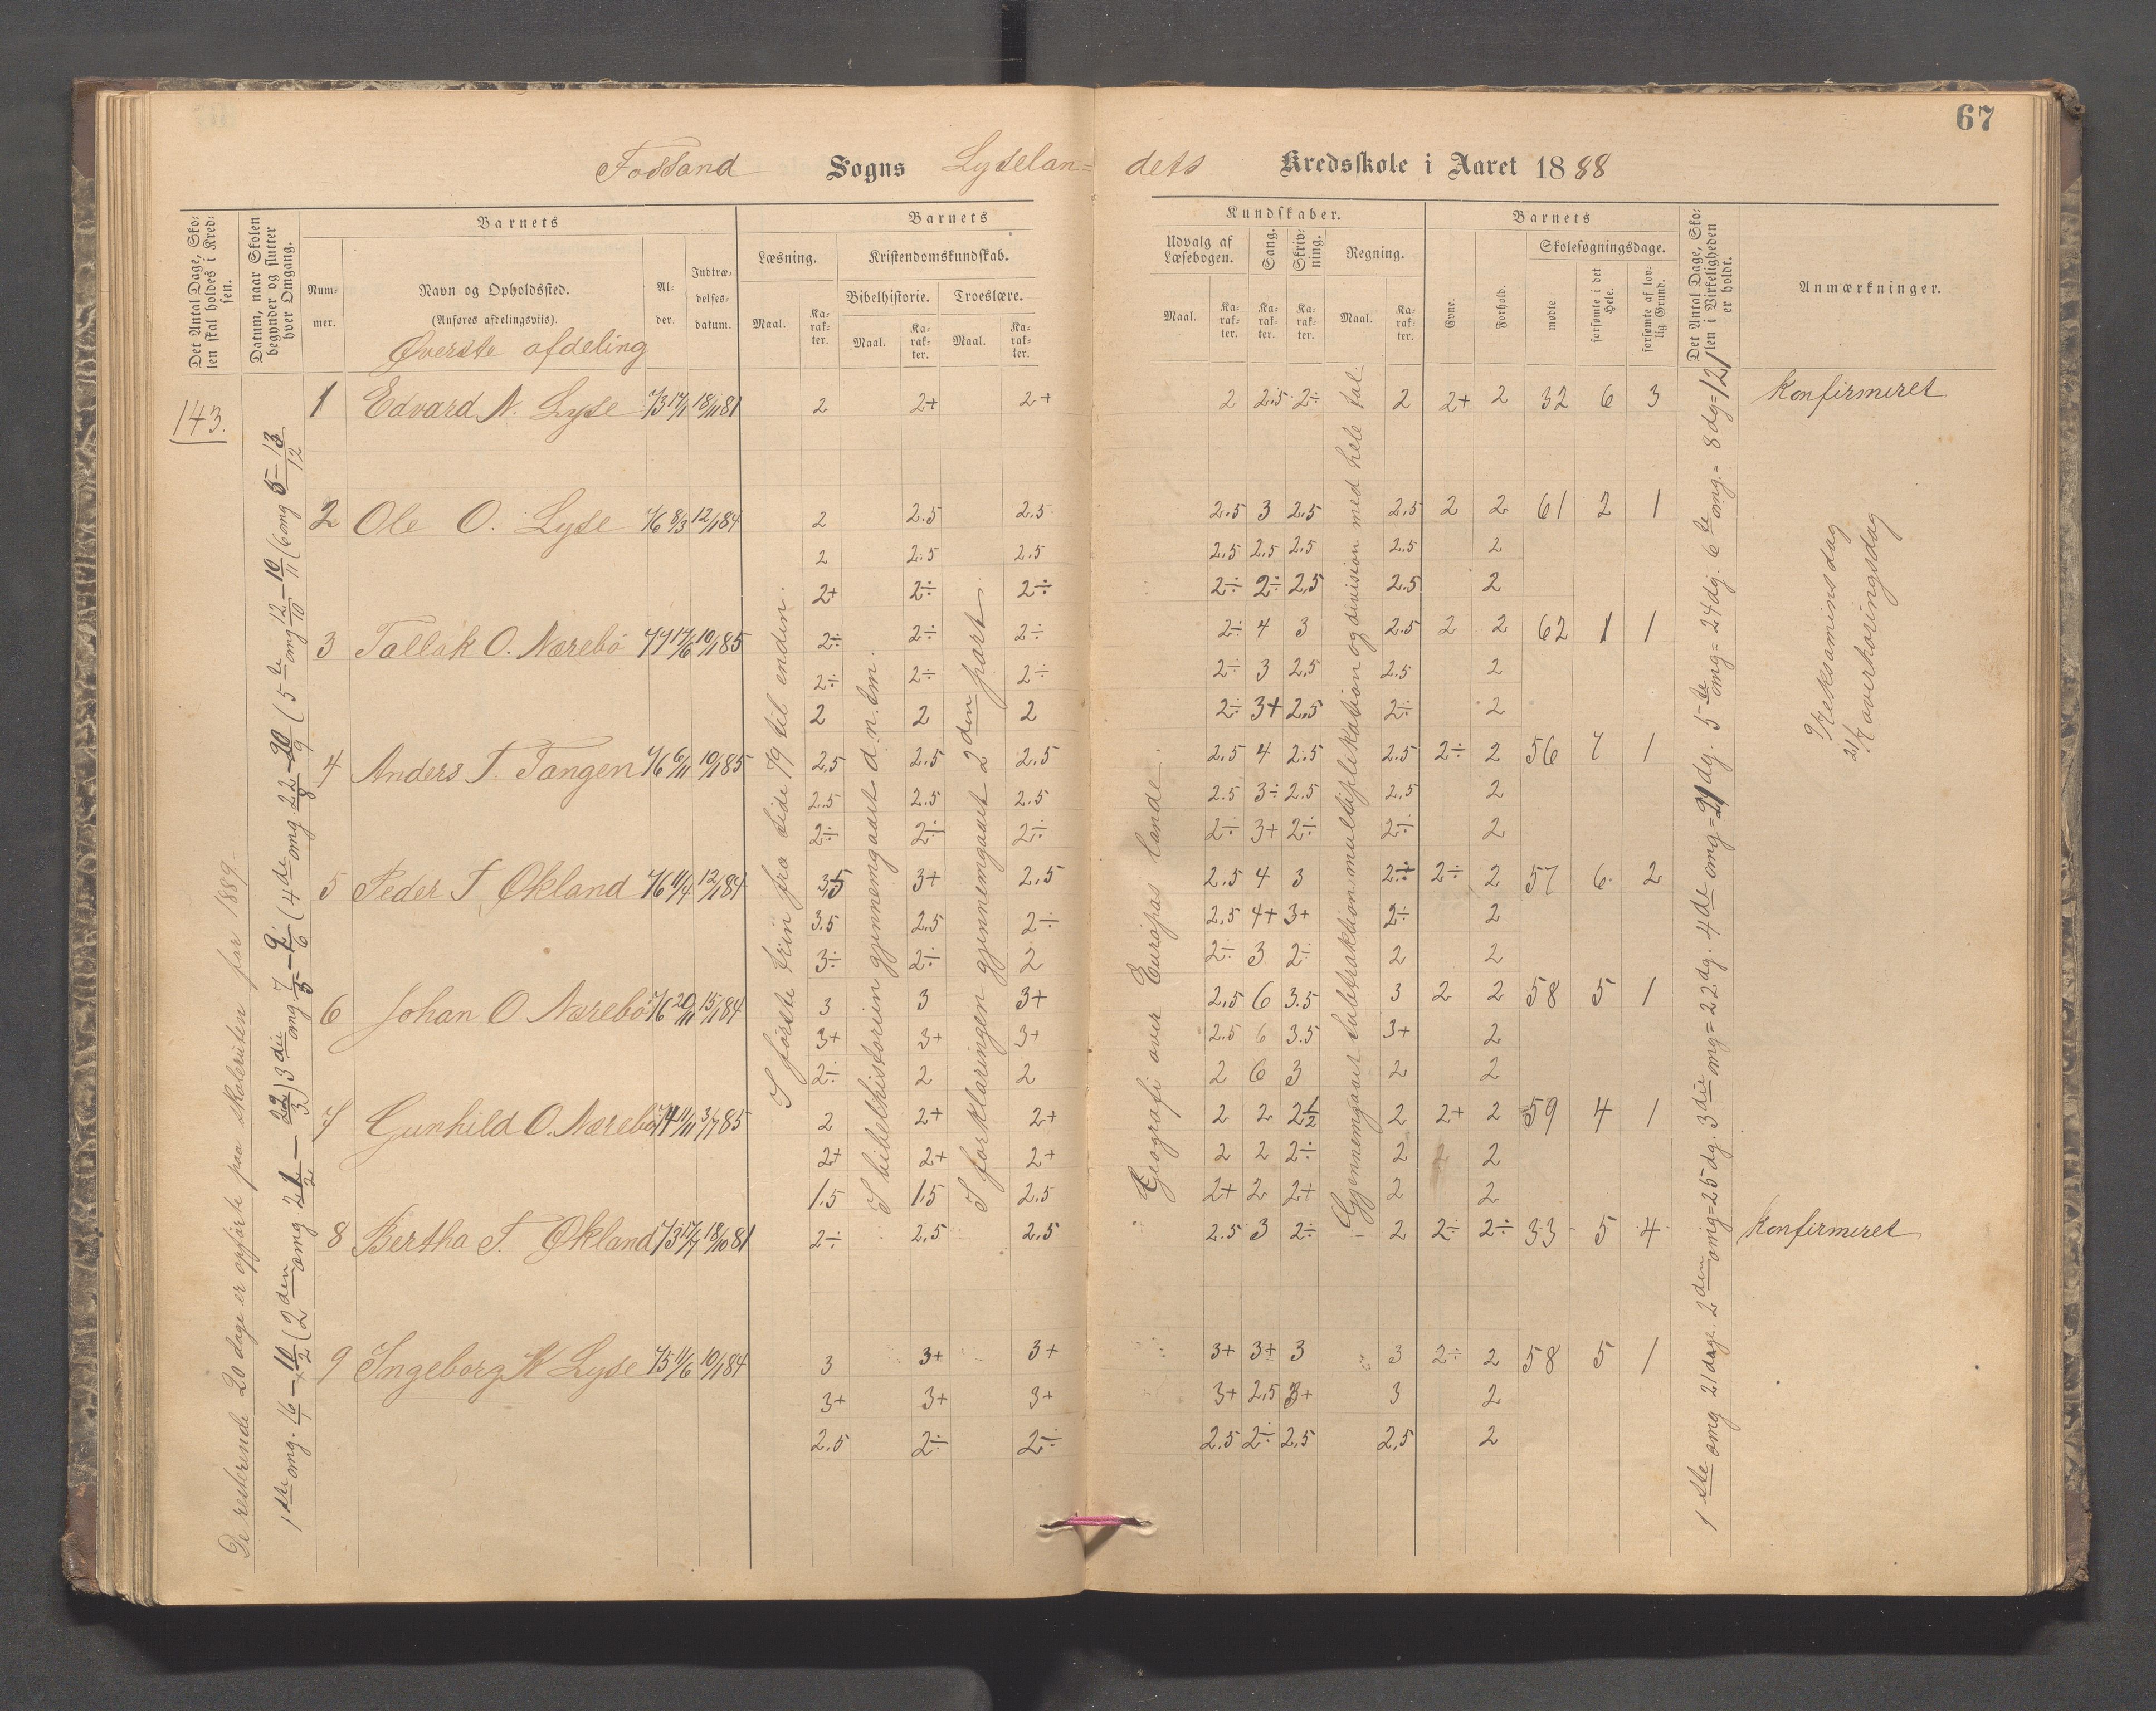 67
Fossand Sogns Lyselan= dets Kredsskole i Aaret 1888
Det Antal Dage, Sko=
len skal holdes i Kred=
sen.
Datum, naar Skolen
begynder og slutter
hver Omgang.
Barnets
Num=
mer.
Navn og Opholdssted.
(Anføres afdelingsviis).
Øverste afdeling
Al=
der.
Indtræ=
delses=
datum.
Barnets
Læsning.
Kristendomskundskab.
Bibelhistorie. Troeslære.
Maal. Ka=
rak=
ter. Maal. Ka=
rak=
ter. Maal. Ka=
rak=
ter.
Kundskaber.
Udvalg af
Læsebogen. Sang. Skriv=
ning. Regning.
Maal. Ka=
rak=
ter. Ka=
rak=
ter. Ka=
rak=
ter. Maal. Ka=
rak=
ter.
Barnets
Evne. Forhold. Skolesøgningsdage.
mødte. forsømte i det
Hele. forsømte af lov=
lig Grund.
Det Antal Dage, Sko=
len i Virkeligheden
er holdt.
Anmærkninger.
143.
De resterende 20 dage er opførte paa skoleruten for 1889.
1ste omg. 16/1 – 10/2 (2den omg 21/2 – 22/3) 3die omg 7/5 – 9/6 (4de omg 22/8 – 20/9 (5te omg 12/10 – 10/11 (6 omg 5 – 13/12
1 Edvard N. Lyse 73 17/1 18/11 81 2 2+ 2+ 2 2.5 2÷ 2 2+ 2 32 6 3 Konfirmeret
2 Ole O. Lyse 76 8/3 12/1 84 2 2.5 2.5 2.5 3 2.5 2.5 2 2 61 2 1
2 2.5 2.5 2.5 2.5 2.5 2.5 2
2+ 2÷ 2÷ 2÷ 2÷ 2.5 2.5 2
3 Tallak O. Nærebö 77 17/6 10/1 85 2÷ 2÷ 2÷ 2÷ 4 3 2.5 2 2 62 1 1
2÷ 2÷ 2÷ 2÷ 3 2.5 2.5 2
2 2 2 2÷ 3+ 2.5 2÷ 2
4 Anders T. Tangen 76 6/11 10/1 85 2.5 2.5 2.5 2.5 4 2.5 2.5 2÷ 2 56 7 1
2.5 2.5 2.5 2.5 3÷ 2.5 2.5 2
2÷ 2÷ 2÷ 2÷ 3+ 2÷ 2÷ 2
5 Peder T. Økland 76 11/4 12/1 84 3.5 3+ 2.5 2.5 4 3 2÷ 2÷ 2 57 6 2
3.5 2.5 2÷ 2.5 4+ 3+ 2÷ 2
3÷ 2÷ 2 2÷ 3 2÷ 2 2
6 Johan O Nærebö 76 20/11 15/1 84 3 3 3+ 2.5 6 3.5 3 2 2 58 5 1
3+ 3+ 3+ 2.5 6 3.5 3+ 2
2÷ 2 2 2 6 3 2 2
7 Gunhild O. Nærebö 74 11/11 3/7 85 2 2+ 2+ 2 2 2½ 2 2+ 2 59 4 1
2+ 2+ 2+ 2 2 2÷ 2 2
1.5 1.5 2.5 2+ 2 2+ 2 2
8 Bertha T. Økland 73 17/7 18/10 81 2÷ 2.5 2.5 2.5 3 2÷ 2 2÷ 2÷ 33 5 4 Konfirmeret
9 Ingeborg K Lyse 75 11/6 10/1 84 3 3+ 3+ 3+ 3+ 3 3 2÷ 2 58 5 1
3+ 3+ 3+ 3+ 2.5 3+ 3 2
2.5 2÷ 2÷ 2.5 2÷ 2.5 2.5 2
I første trin fra side 79 til enden.
I bibelhistorien gjennemgaaet d. n. tm.
I forklaringen gjennemgaaet 2den part
Geografi over Europas lande.
Gjennemgaaet subtraktion multiplikation og division med hele tal.
1ste omg 21 dage. 2den omg=25 dg. 3die omg=22 dg. 4de omg=21 dg. 5te omg=24 dg. 6te omg.=8 dg=121
9/7 eksamensdag
21/7 overhøringsdag